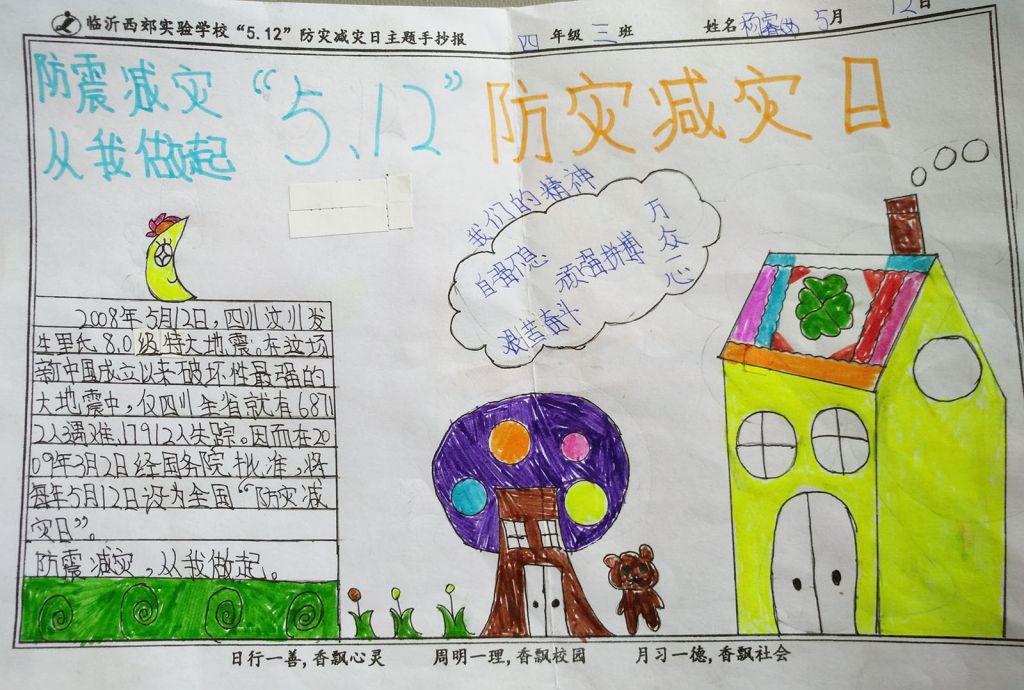 临沂西郊实验学校“5.12”防灾减灾日主题手抄报
四 年级 三 班 姓名 杨睿 5月 12日
防震减灾
从我做起
“5.12”防灾减灾日
我们的精神
自强不息
顽强拼搏
万众一心
艰苦奋斗
2008年5月12日,四川汶川发
生里氏8.0级特大地震。在这场
新中国成立以来破坏性最强的
大地震中,仅四川全省就有6871
2人遇难,17912人失踪。因而在20
09年3月2日经国务院批准,将
每年5月12日设为全国“防灾减
灾日”。
防震减灾,从我做起。
日行一善,香飘心灵 周明一理,香飘校园 月习一德,香飘社会